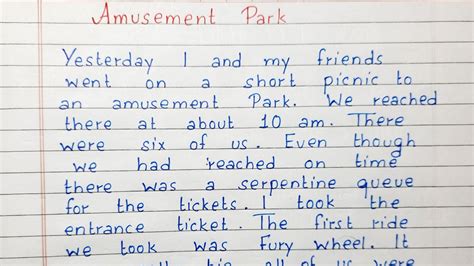 Amusement Park
Yesterday I and my friends
went on a short picnic to
an amusement Park. We reached
there at about 10 am. There
were six of us. Even though
we had reached on time
there was a serpentine queue
for the tickets. I took the
entrance ticket. The first ride
we took was Fury wheel. It
all of us were